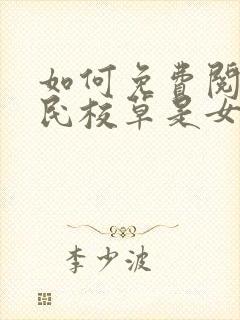 如何免费閱
民校草是女
李少波